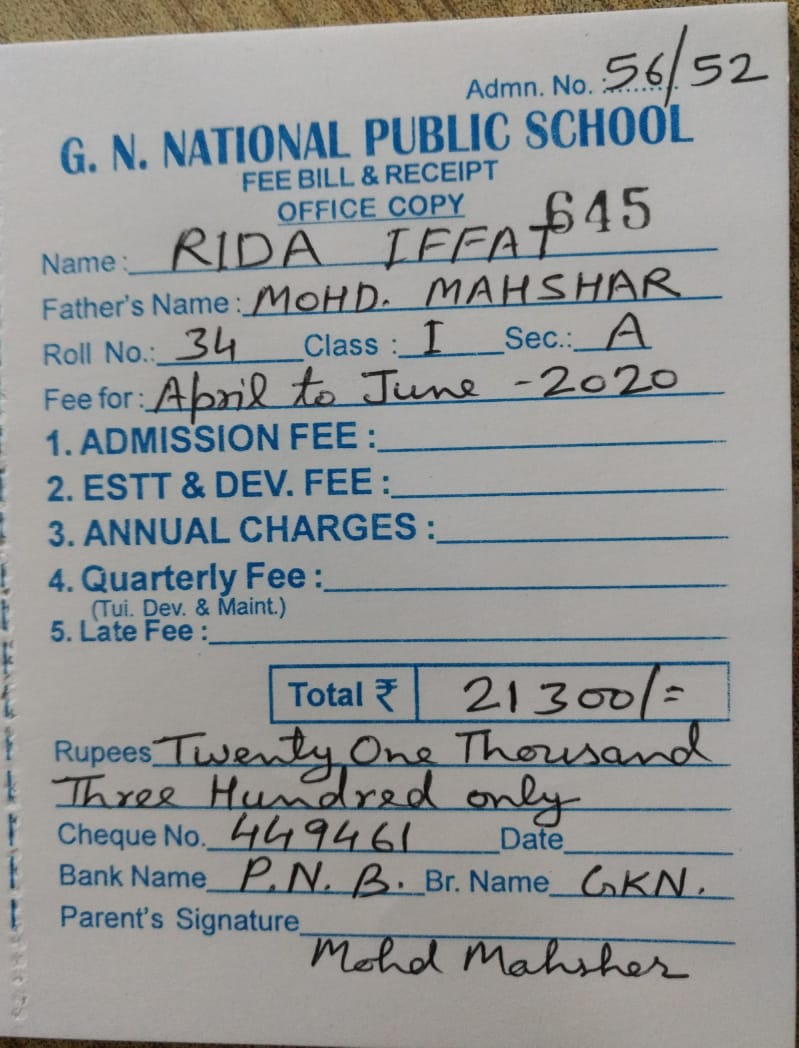 Admn. No. : 56/52
G. N. NATIONAL PUBLIC SCHOOL
FEE BILL & RECEIPT
OFFICE COPY
645
Name : RIDA IFFAT
Father's Name : MOHD. MAHSHAR
Roll No.: 34 Class : I Sec.: A
Fee for : April to June - 2020
1. ADMISSION FEE :
2. ESTT & DEV. FEE :
3. ANNUAL CHARGES :
4. Quarterly Fee :
(Tui. Dev. & Maint.)
5. Late Fee :
Total ₹ 21300/=
Rupees Twenty One Thousand
Three Hundred only
Cheque No. 449461 Date
Bank Name P.N.B. Br. Name GKN.
Parent's Signature
Mohd Mahsher